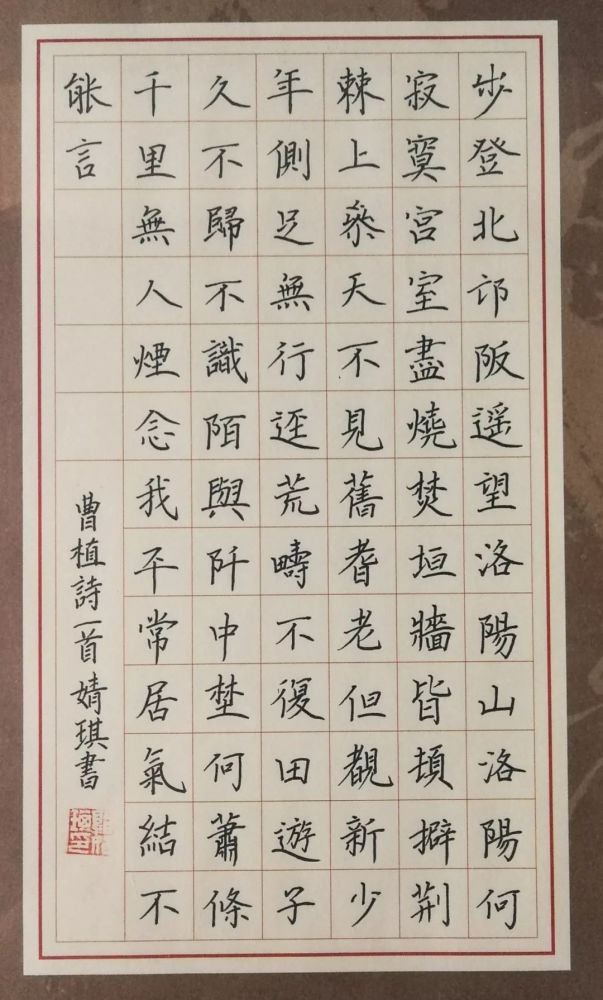 步登北邙阪遥望洛陽山洛陽何
寂寞宮室盡燒焚垣牆皆頓擗荆
棘上參天不見舊耆老但覩新少
年側足無行逕荒疇不復田遊子
久不歸不識陌與阡中埜何蕭條
千里無人煙念我平常居氣結不
能言
曹植詩一首婧琪書